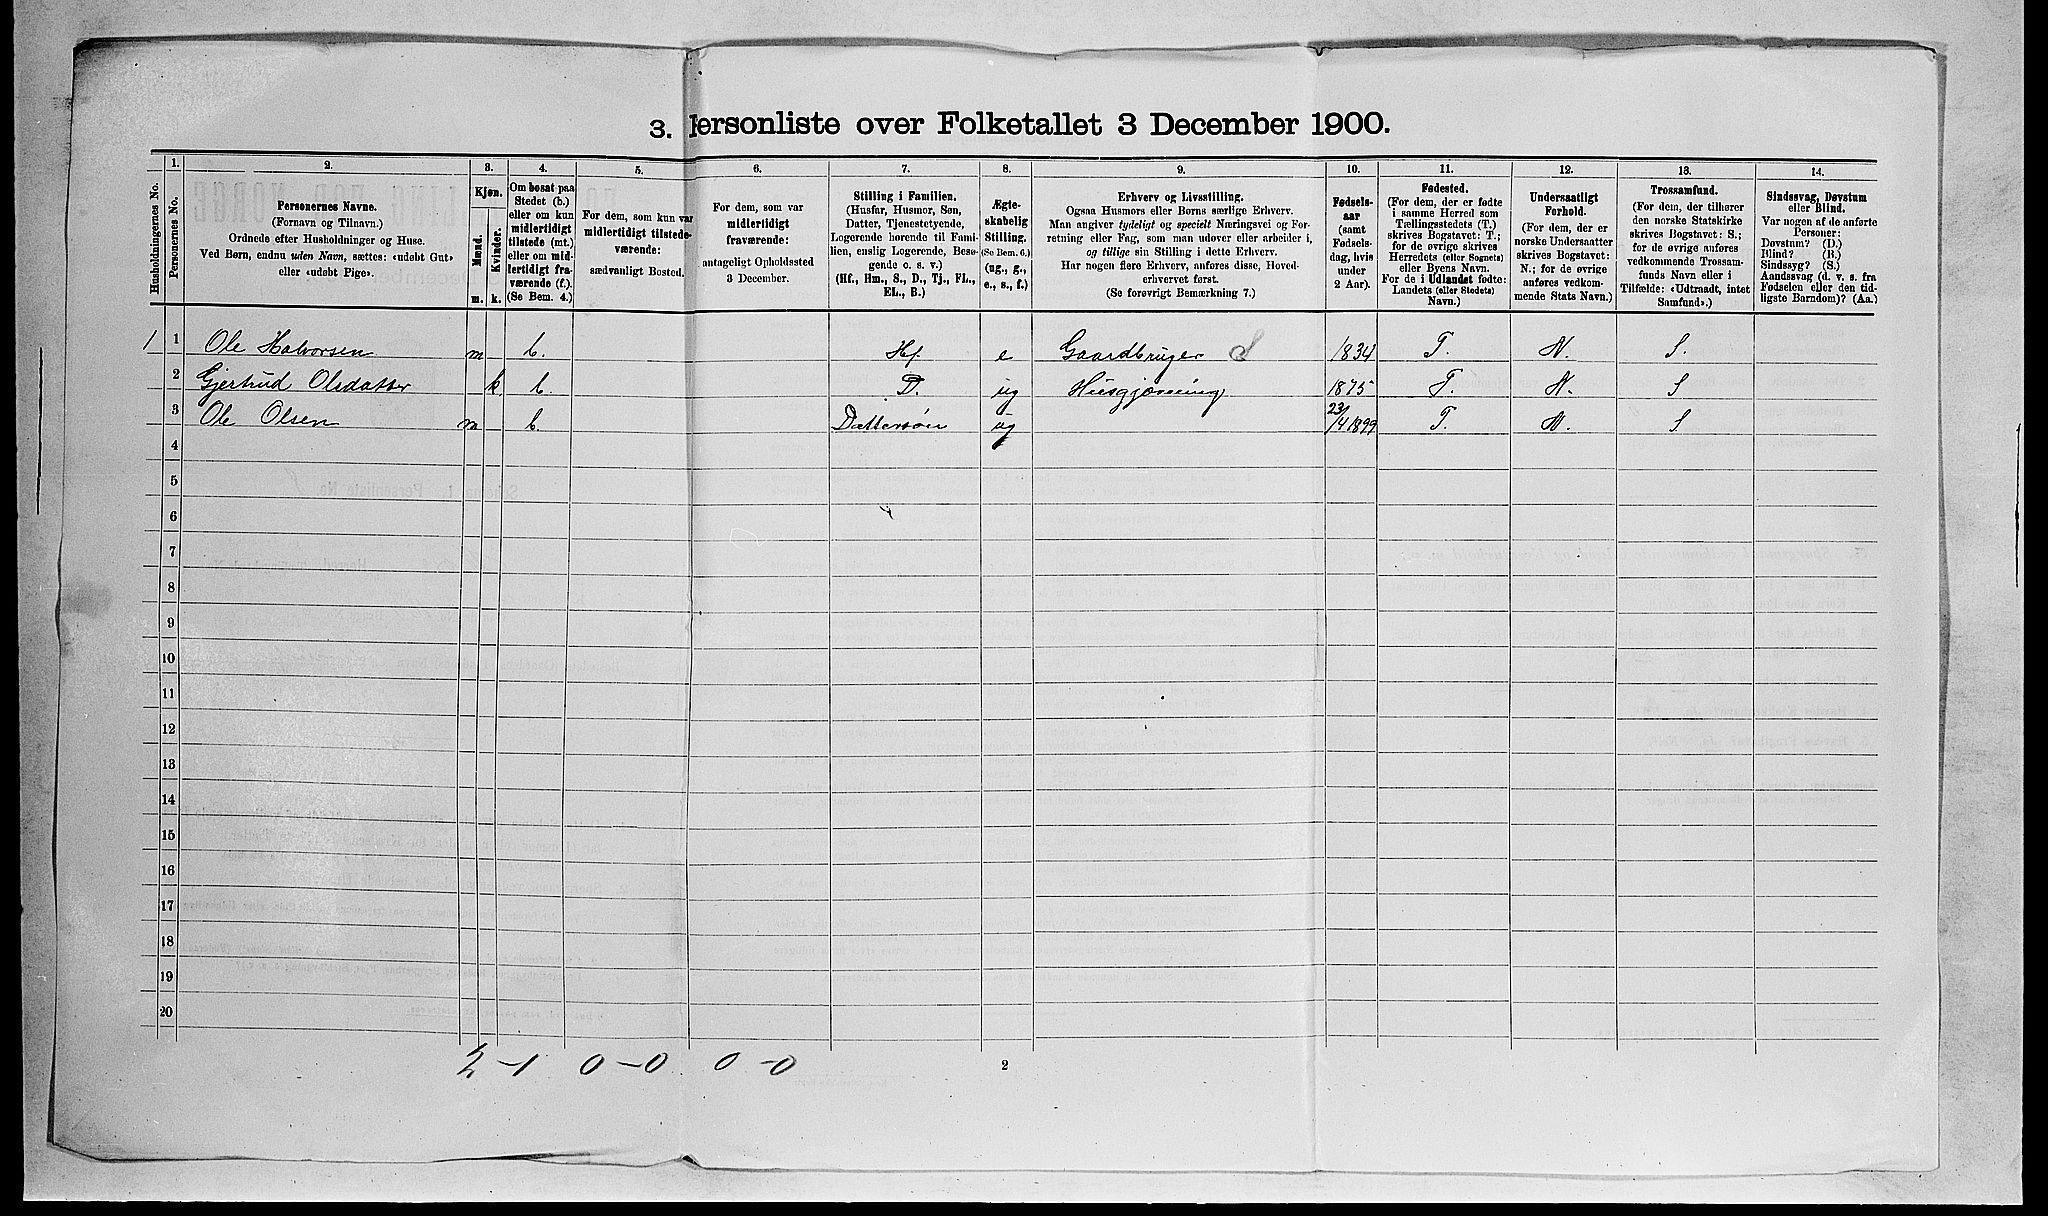 3. Personliste over Folketallet 3 December 1900.
1. 2. 3. 4. 5. 6. 7. 8. 9. 10. 11. 12. 13. 14.
Husholdningernes No.
Personernes No.
Personernes Navne.
(Fornavn og Tilnavn.)
Ordnede efter Husholdninger og Huse.
Ved Børn, endnu uden Navn, sættes: «udøbt Gut»
eller «udøbt Pige».
Kjøn.
Mænd.
Kvinder.
m. k.
Om bosat paa
Stedet (b.)
eller om kun
midlertidigt
tilstede (mt.)
eller om mid-
lertidigt fra-
værende (f.).
(Se Bem. 4.)
For dem, som kun var
midlertidigt tilstede-
værende:
sædvanligt Bosted.
For dem, som var
midlertidigt
fraværende:
antageligt Opholdssted
3 December.
Stilling i Familien.
(Husfar, Husmor, Søn,
Datter, Tjenestetyende,
Logerende hørende til Fami-
lien, enslig Logerende, Besø-
gende o. s. v.)
(Hf., Hm., S., D., Tj., FL.,
EL., B.)
Ægte-
skabelig
Stilling.
(Se Bem. 6.)
(ug., g.,
e., s., f.)
Erhverv og Livsstilling.
Ogsaa Husmors eller Børns særlige Erhverv.
Man angiver tydeligt og specielt Næringsvei og For-
retning eller Fag, som man udøver eller arbeider i,
og tillige sin Stilling i dette Erhverv.
Har nogen flere Erhverv, anføres disse, Hoved-
erhvervet først.
(Se forøvrigt Bemærkning 7.)
Fødsels-
aar
(samt
Fødsels-
dag, hvis
under
2 Aar).
Fødested.
(For dem, der er fødte
i samme Herred som
Tællingsstedets (T.)
skrives Bogstavet: T.;
for de øvrige skrives
Herredets (eller Sognets)
eller Byens Navn.
For de i Udlandet fødte:
Landets (eller Stedets)
Navn.)
Undersaatligt
Forhold.
(For dem, der er
norske Undersaatter
skrives Bogstavet:
N.; for de øvrige
anføres vedkom-
mende Stats Navn.)
Trossamfund.
(For dem, der tilhører
den norske Statskirke
skrives Bogstavet: S.;
for de øvrige anføres
vedkommende Trossam-
funds Navn eller i
Tilfælde: «Udtraadt, intet
Samfund».)
Sindssvag, Døvstum
eller Blind.
Var nogen af de anførte
Personer:
Døvstum? (D.)
Blind? (B.)
Sindssyg? (S.)
Aandssvag (d. v. s. fra
Fødselen eller den tid-
ligste Barndom)? (Aa.)
1 1 Ole Halvorsen m b. Hf. e Gaardbruger S 1834 T. N. S.
2 Gjertrud Olsdatter k b. D. ug Husgjærning 1875 T. N. S
3 Ole Olsen m b. Dattersøn ug 23/4 1899 T. N. S
4
5
6
7
8
9
10
11
12
13
14
15
16
17
18
19
20
2 – 1 0 – 0 0 – 0
2